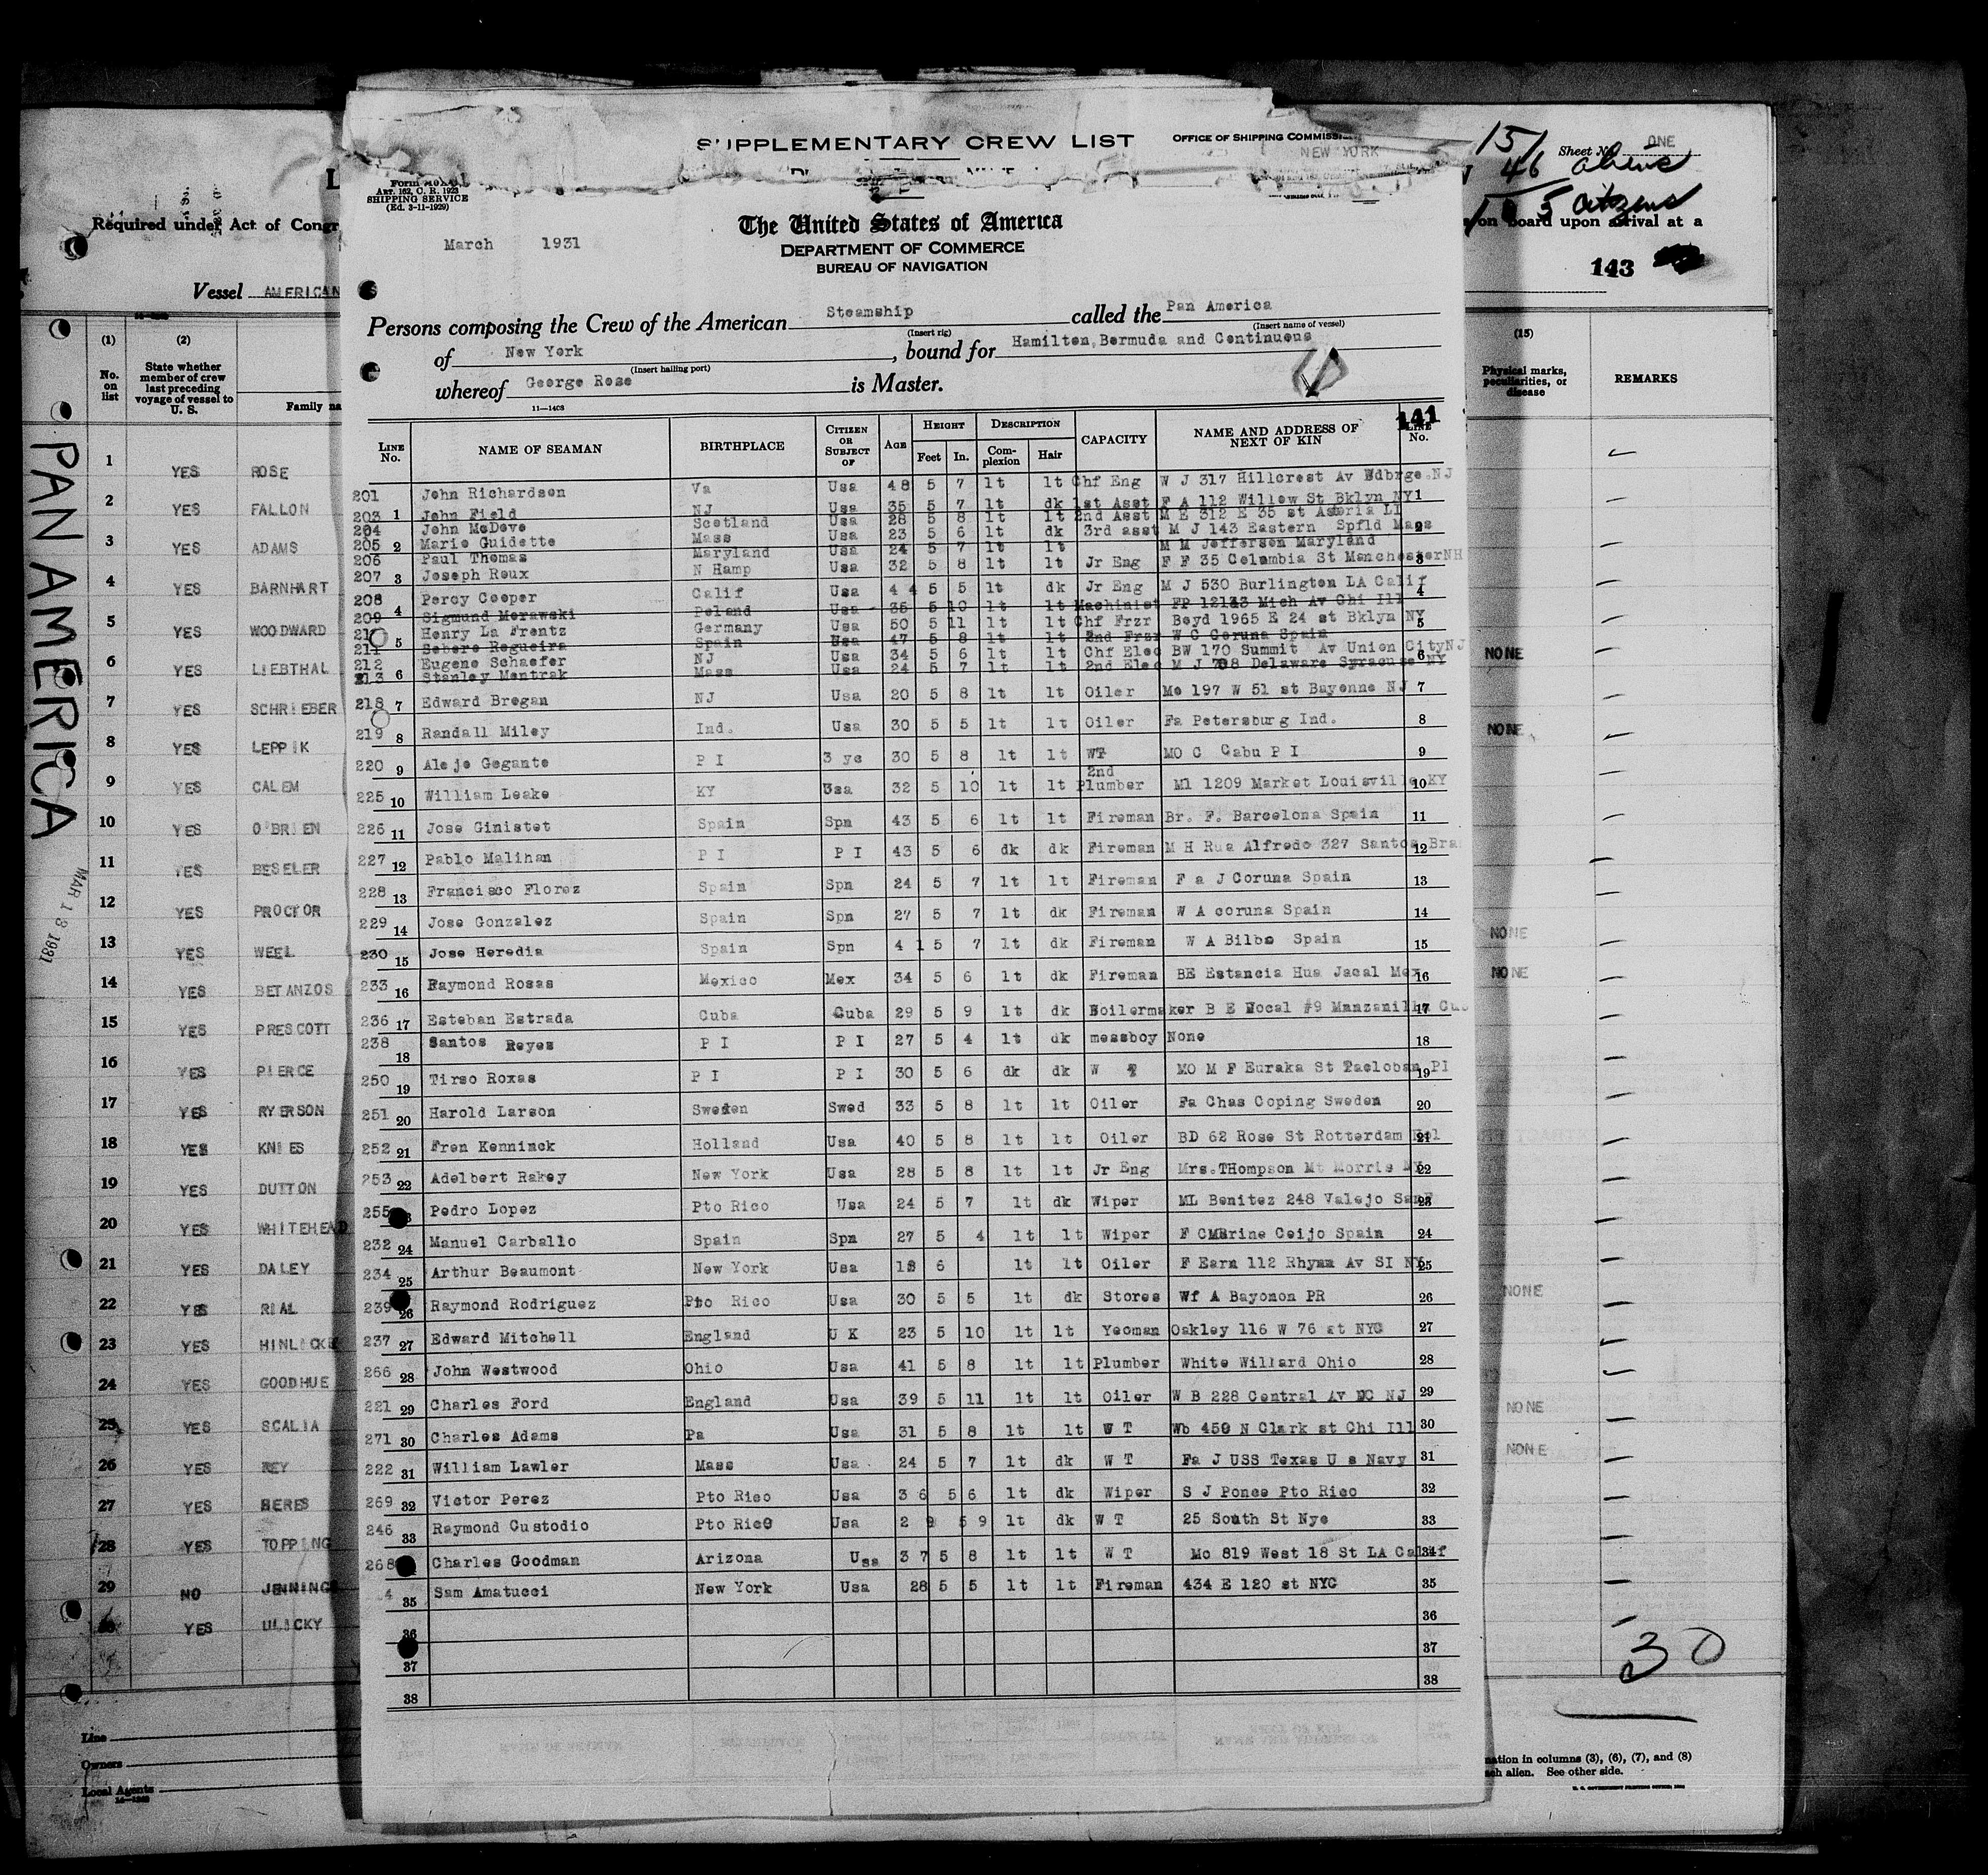 SUPPLEMENTARY CREW LIST
OFFICE OF SHIPPING
NEW YORK
ART. 162, C. R. 1923
SHIPPING SERVICE
(Ed. 3-11-1929)
The United States of America
DEPARTMENT OF COMMERCE
BUREAU OF NAVIGATION
March 1931
Persons composing the Crew of the American Steamship called the Pan America
(Insert rig) (Insert name of vessel)
of New York, bound for Hamilton, Bermuda and Continuous
(Insert hailing port)
whereof George Rose is Master.
11—1403
141
LINE No. NAME OF SEAMAN BIRTHPLACE CITIZEN OR SUBJECT OF AGE HEIGHT Feet In. DESCRIPTION Complexion Hair CAPACITY NAME AND ADDRESS OF NEXT OF KIN LINE No.
201 John Richardson Va Usa 48 5 7 lt lt Chf Eng W J 317 Hillcrest Av Wdbrge NJ
203 1 John Field NJ Usa 35 5 7 lt dk 1st Asst F A 112 Willow St Bklyn NY 1
204 John McDove Scotland Usa 28 5 8 lt lt 2nd Asst M E 312 E 35 st Astoria LI
205 2 Mario Guidette Mass Usa 23 5 6 lt dk 3rd asst M J 143 Eastern Spfld Mass 2
206 Paul Thomas Maryland Usa 24 5 7 lt lt M M Jefferson Maryland
207 3 Joseph Roux N Hamp Usa 32 5 8 lt lt Jr Eng F F 35 Columbia St Manchester NH 3
208 Percy Cooper Calif Usa 4 4 5 5 lt dk Jr Eng M J 530 Burlington LA Calif 4
209 4 Sigmund Morawski Poland Usa 35 5 10 lt lt Machinist FP 12143 Mich Av Chi Ill
210 Henry La Frentz Germany Usa 50 5 11 lt lt Chf Frzr Boyd 1965 E 24 st Bklyn NY 5
211 5 Sebero Regueira Spain Usa 47 5 8 lt lt 2nd Frzr W C Coruna Spain
212 Eugene Schaefer NJ Usa 34 5 6 lt lt Chf Elec BW 170 Summit Av Union City NJ 6
213 6 Stanley Mentrak Mass Usa 24 5 7 lt lt 2nd Elec M J 708 Delaware Syracuse NY
218 7 Edward Bregan NJ Usa 20 5 8 lt lt Oiler Mo 197 W 51 st Bayonne NJ 7
219 8 Randall Miley Ind. Usa 30 5 5 lt lt Oiler Fa Petersburg Ind. 8
220 9 Alejo Gegante P I 3 yc 30 5 8 lt lt WT MO C Cabu P I 9
225 10 William Leake KY Usa 32 5 10 lt lt 2nd Plumber Ml 1209 Market Louisville KY 10
226 11 Jose Ginistet Spain Spn 43 5 6 lt lt Fireman Br. F. Barcelona Spain 11
227 12 Pablo Malihan P I P I 43 5 6 dk dk Fireman M H Rua Alfredo 327 Santos Bra 12
228 13 Francisco Florez Spain Spn 24 5 7 lt lt Fireman F a J Coruna Spain 13
229 14 Jose Gonzalez Spain Spn 27 5 7 lt dk Fireman W A coruna Spain 14
230 15 Jose Heredia Spain Spn 4 1 5 7 lt dk Fireman W A Bilbo Spain 15
233 16 Raymond Rosas Mexico Mex 34 5 6 lt dk Fireman BE Estancia Hua Jacal Mex 16
236 17 Esteban Estrada Cuba Cuba 29 5 9 lt dk Boilermaker B E Nocal #9 Manzanilla Cub 17
238 18 Santos Reyes P I P I 27 5 4 lt dk messboy None 18
250 19 Tirso Roxas P I P I 30 5 6 dk dk W T MO M F Euraka St Tacloban PI 19
251 20 Harold Larson Sweden Swed 33 5 8 lt lt Oiler Fa Chas Coping Sweden 20
252 21 Fren Kenninck Holland Usa 40 5 8 lt lt Oiler BD 62 Rose St Rotterdam Hol 21
253 22 Adelbert Rakey New York Usa 28 5 8 lt lt Jr Eng Mrs.THompson Mt Morris NY 22
255 Pedro Lopez Pto Rico Usa 24 5 7 lt dk Wiper ML Benitez 248 Valejo 23
232 24 Manuel Carballo Spain Spn 27 5 4 lt lt Wiper F CMarine Ceijo Spain 24
234 25 Arthur Beaumont New York Usa 18 6 lt lt Oiler F Earn 112 Rhynn Av SI NY 25
239 26 Raymond Rodriguez Pto Rico Usa 30 5 5 lt dk Stores Wf A Bayonon PR 26
237 27 Edward Mitchell England U K 23 5 10 lt lt Yeoman Oakley 116 W 76 st NYC 27
266 28 John Westwood Ohio Usa 41 5 8 lt lt Plumber White Willard Ohio 28
221 29 Charles Ford England Usa 39 5 11 lt lt Oiler W B 228 Central Av NJ 29
271 30 Charles Adams Pa Usa 31 5 8 lt lt W T Wb 450 N Clark st Chi Ill 30
222 31 William Lawler Mass Usa 24 5 7 lt dk W T Fa J USS Texas U s Navy 31
269 32 Victor Perez Pto Rico Usa 3 6 5 6 lt dk Wiper S J Ponce Pto Rico 32
246 33 Raymond Custodio Pto Rico Usa 2 9 5 9 lt dk W T 25 South St Nyc 33
268 Charles Goodman Arizona Usa 3 7 5 8 lt lt W T Mo 819 West 18 St LA Calif 34
4 35 Sam Amatucci New York Usa 28 5 5 lt lt Fireman 434 E 120 st NYC 35
36 36
37 37
38 38
Required under Act of Congr
Vessel AMERICAN
(1) (2)
No. on list
State whether member of crew last preceding voyage of vessel to U. S.
Family na
1 YES ROSE
2 YES FALLON
3 YES ADAMS
4 YES BARNHART
5 YES WOODWARD
6 YES LIEBTHAL
7 YES SCHRIEBER
8 YES LEPPIK
9 YES CALEM
10 YES O'BRIEN
11 YES BESELER
12 YES PROCTOR
13 YES WEEL
14 YES BETANZOS
15 YES PRESCOTT
16 YES PIERCE
17 YES RYERSON
18 YES KNIES
19 YES DUTTON
20 YES WHITEHEAD
21 YES DALEY
22 YES RIAL
23 YES HINLICK
24 YES GOODHUE
25 YES SCALIA
26 YES REY
27 YES BERES
28 YES TOPPING
29 NO JENNING
YES ULICKY
Line
Owners
Local Agents
PAN AMERICA
MAR 13 1931
151
Sheet No. ONE
46 aliens
105 citizens
on board upon arrival at a
143
(15)
Physical marks, peculiarities, or disease
REMARKS
NONE
NONE
NONE
NONE
NONE
NONE
NONE
30
mation in columns (3), (6), (7), and (8)
ch alien. See other side.